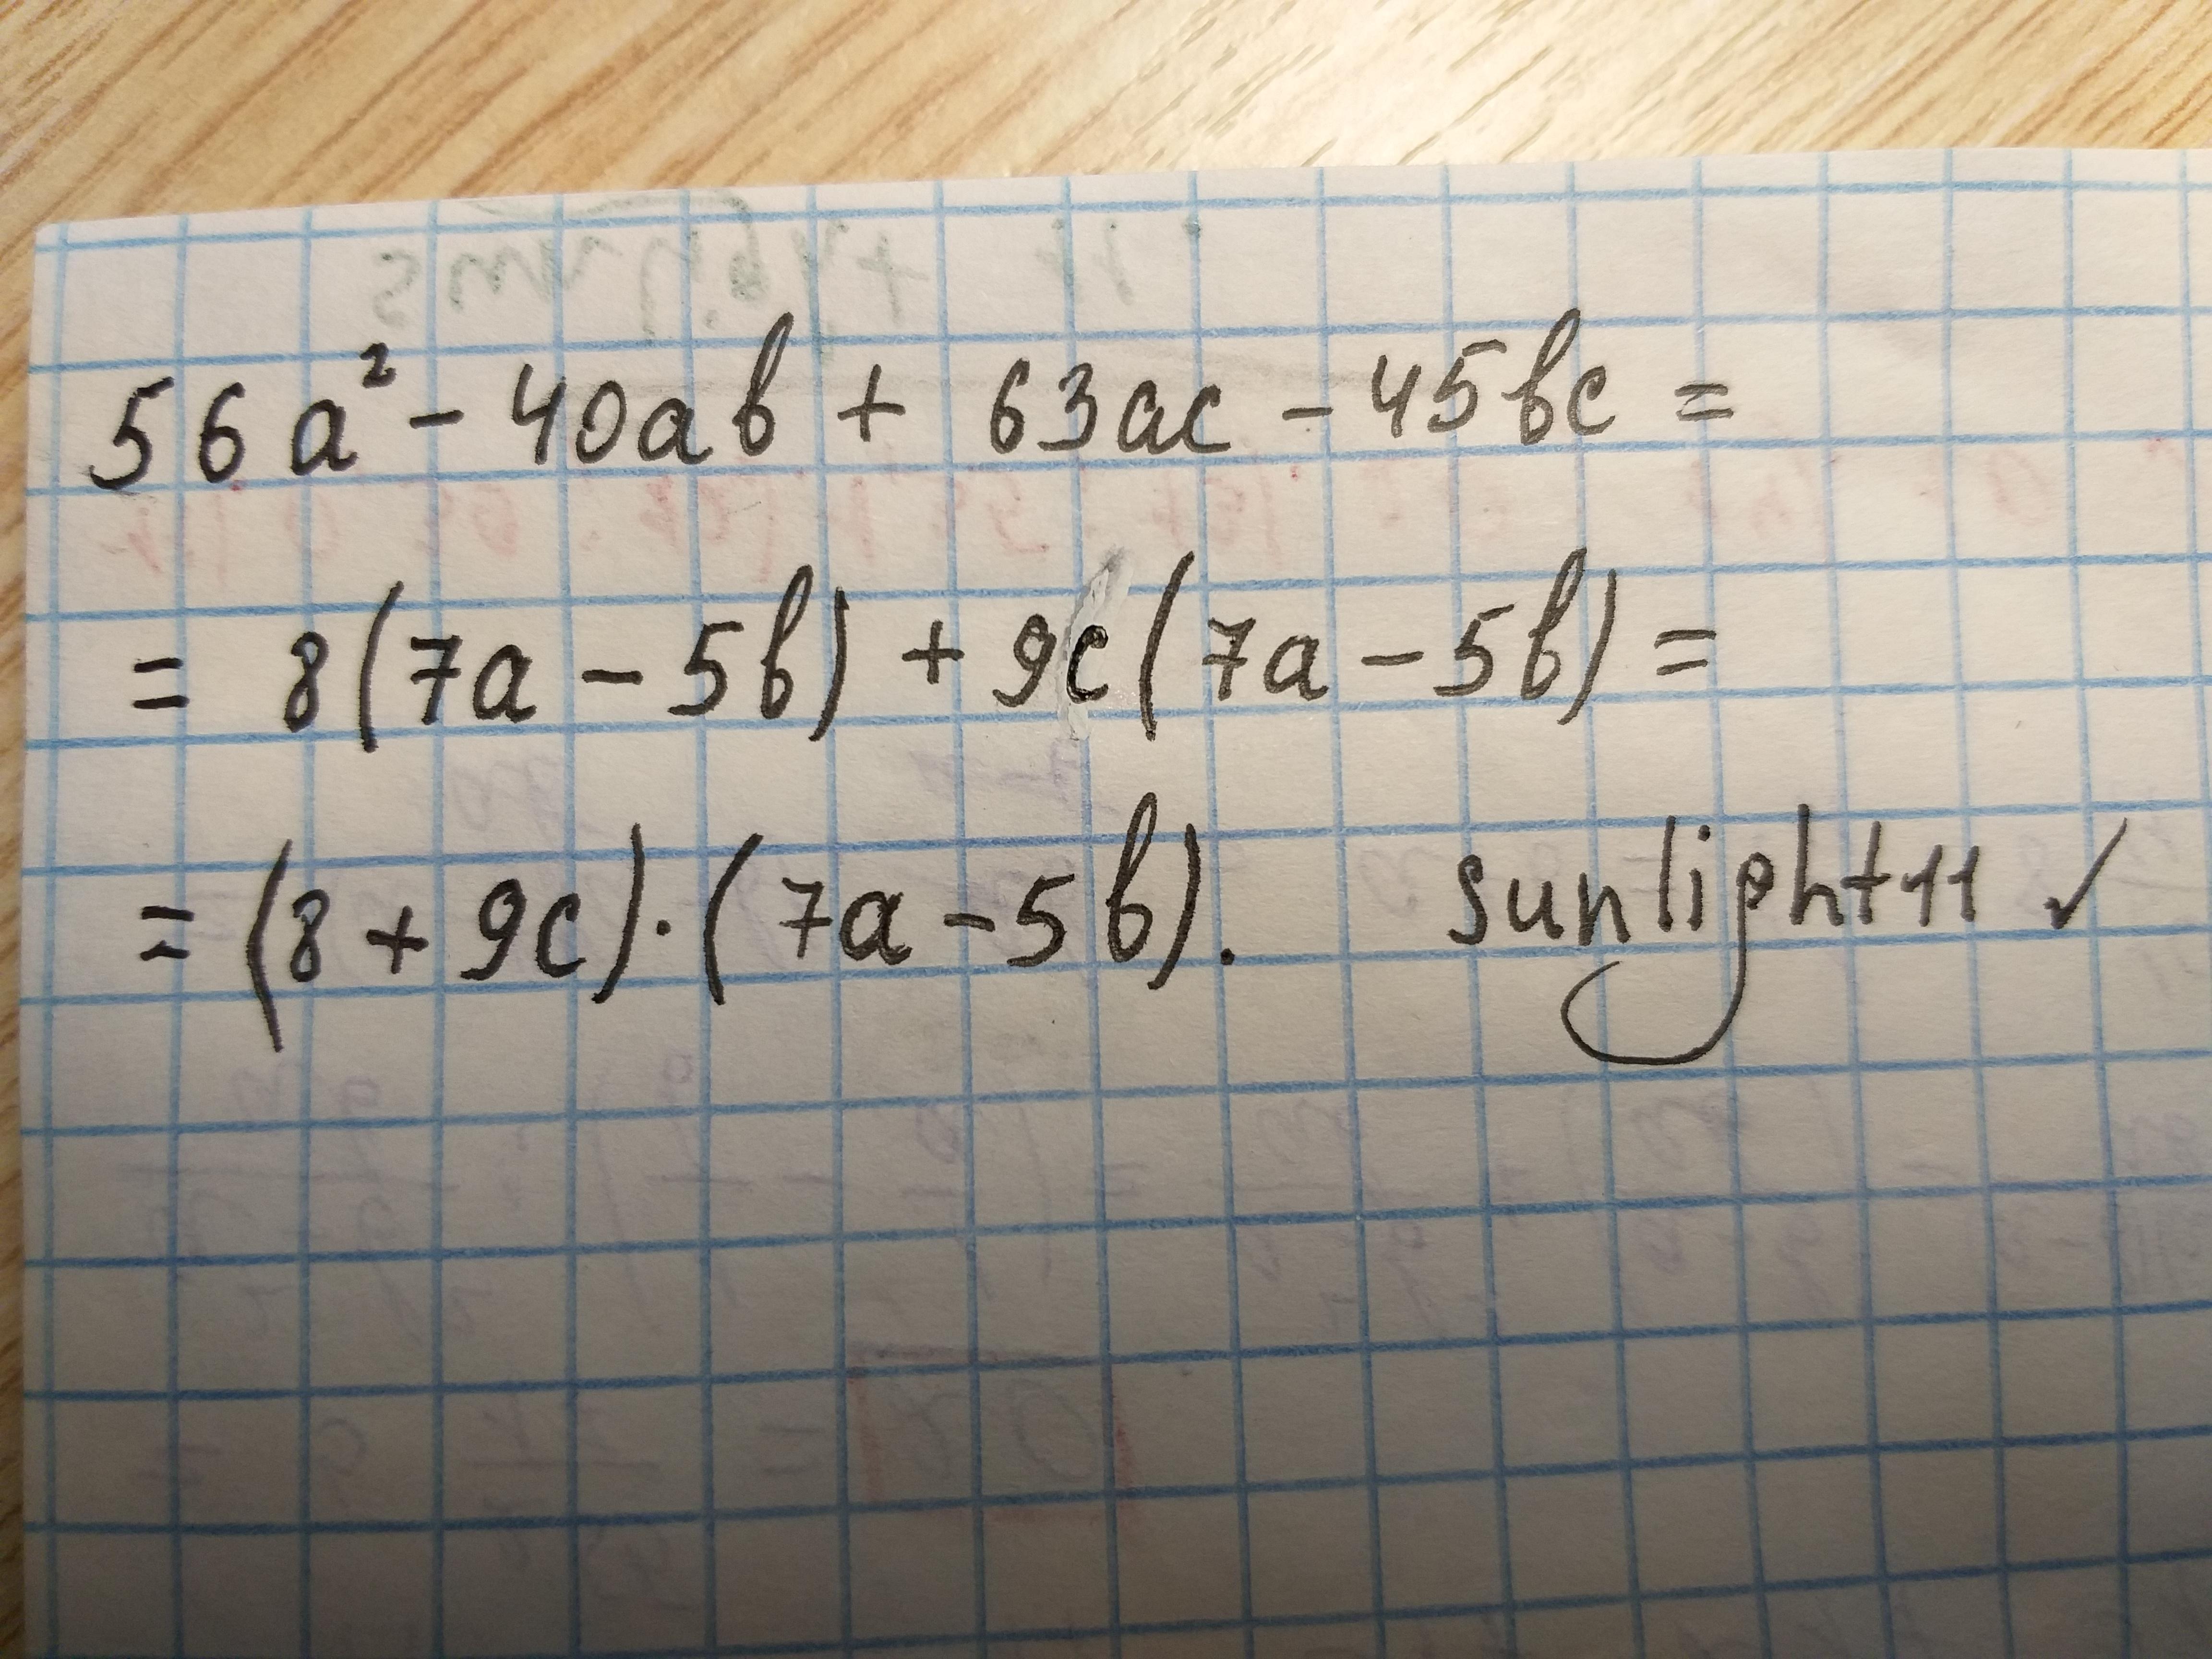 56a² - 40ab + 63ac - 45bc =
= 8(7a - 5b) + 9c(7a - 5b) =
= (8 + 9c) · (7a - 5b). sunlight11 ✓